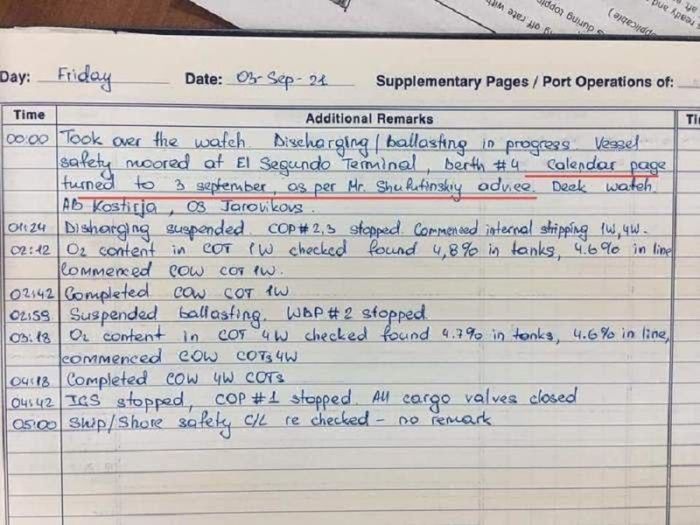 s during topping off rate with
(applicable)
Day: Friday Date: 03-Sep-21 Supplementary Pages / Port Operations of:
Time Additional Remarks
00:00 Took over the watch. Discharging / ballasting in progress. Vessel
safety moored at El Segundo Terminal, berth #4. Calendar page
turned to 3 september, as per Mr. Shufutinskiy advice. Deck watch.
AB Kostirja, OS Jarovikovs.
01:24 Disharging suspended. COP#2,3 stopped. Commenced internal stripping 1W,4W.
02:12 O2 content in COT 1W checked found 4,8% in tanks, 4.6% in line
Commenced COW COT 1W.
02:42 Completed COW COT 1W
02:59 Suspended ballasting. WBP #2 stopped
03:18 O2 content in COT 4W checked found 4.7% in tanks, 4.6% in line,
commenced COW COTs4W
04:18 Completed COW 4W COTs
04:42 IGS stopped, COP #1 stopped. All cargo valves closed
05:00 Ship/Shore safety C/L re checked - no remark